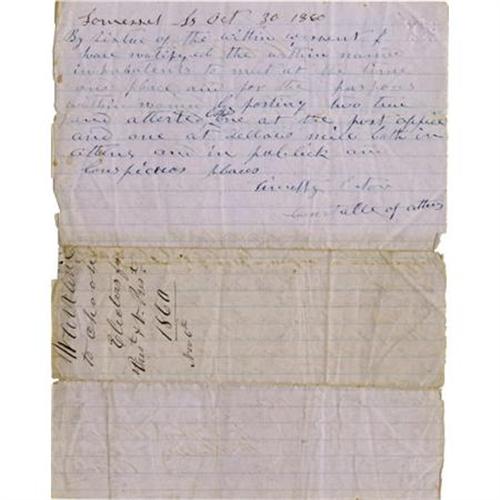 Somerset ss Oct 30 1860
By virtue of the within warrent I
have notifyed the within name
inhabatents to meet at the time
and place and for the purpous
within named by posting two true
and attested one at the post office
and one at mill both in
athens and in publick and
Conspicous places
Timothy
Constable of athens
Warrant
to choose
Electors for
Prest & V. Prest
1860
Nov 6th